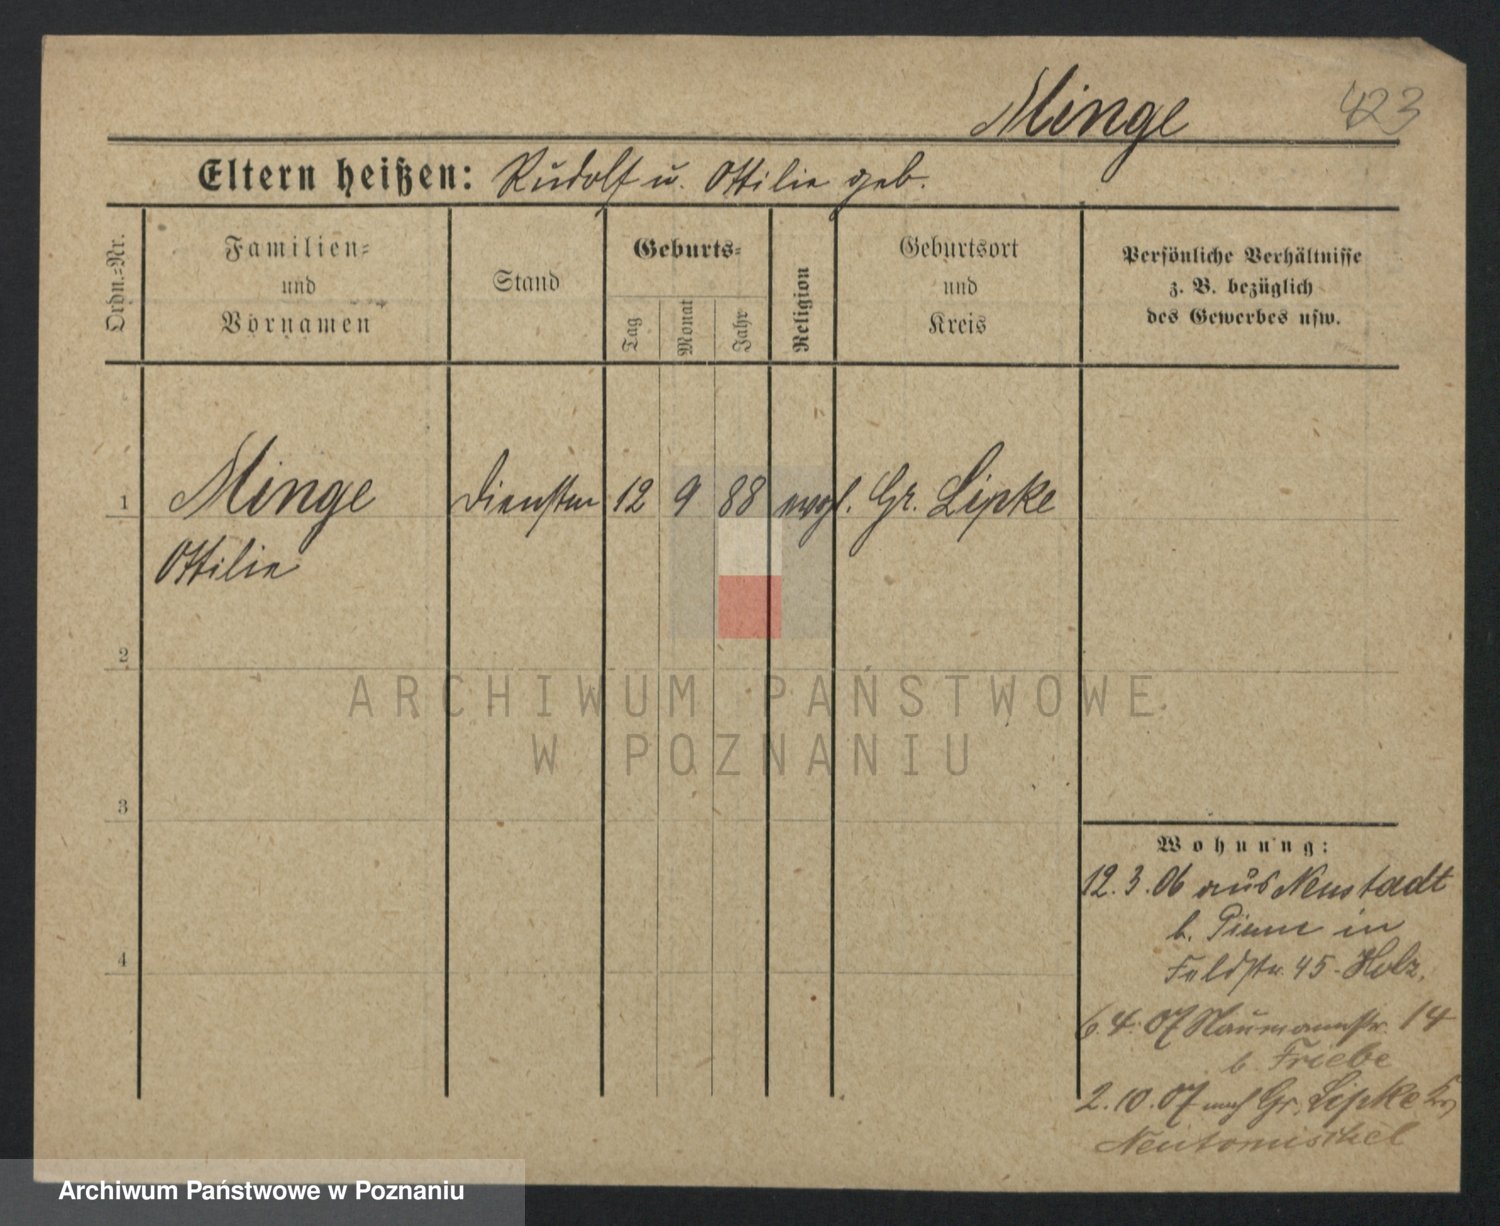 Minge 423
Eltern heißen: Rudolf u. Ottilie geb.
Ordn.=Nr.
Familien=
und
Vornamen
Stand
Geburts=
Tag
Monat
Jahr
Religion
Geburtsort
und
Kreis
Persönliche Verhältnisse
z. B. bezüglich
des Gewerbes usw.
1 Minge Dienstm 12 9 88 evgl. Gr. Lipke
Ottilie
2
3
4
Wohnung:
12.3.06 aus Neustadt
b. Pinne in
Feldstr. 45. Holz.
6.4.07 Naumannstr. 14
b. Friebe
2.10.07 nach Gr. Lipke Kr
Neutomischel
ARCHIWUM PAŃSTWOWE
W POZNANIU
Archiwum Państwowe w Poznaniu